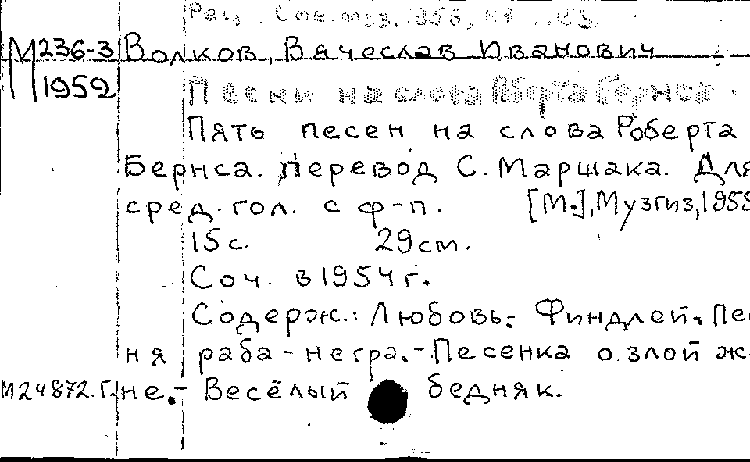 М236-3 Волков, Вячеслав Иванович
1959 Песни на слова Роберта Бернса.
Пять песен на слова Роберта
Бернса. Перевод С. Маршака. Для
сред. гол. с ф-п. [М.], Музгиз, 1959
15 с. 29 см.
Соч. в 1954 г.
Содерж.: Любовь.- Финдлей.- Пес
ня раба-негра.- Песенка о злой же
М24872.Г. не.- Весёлый бедняк.